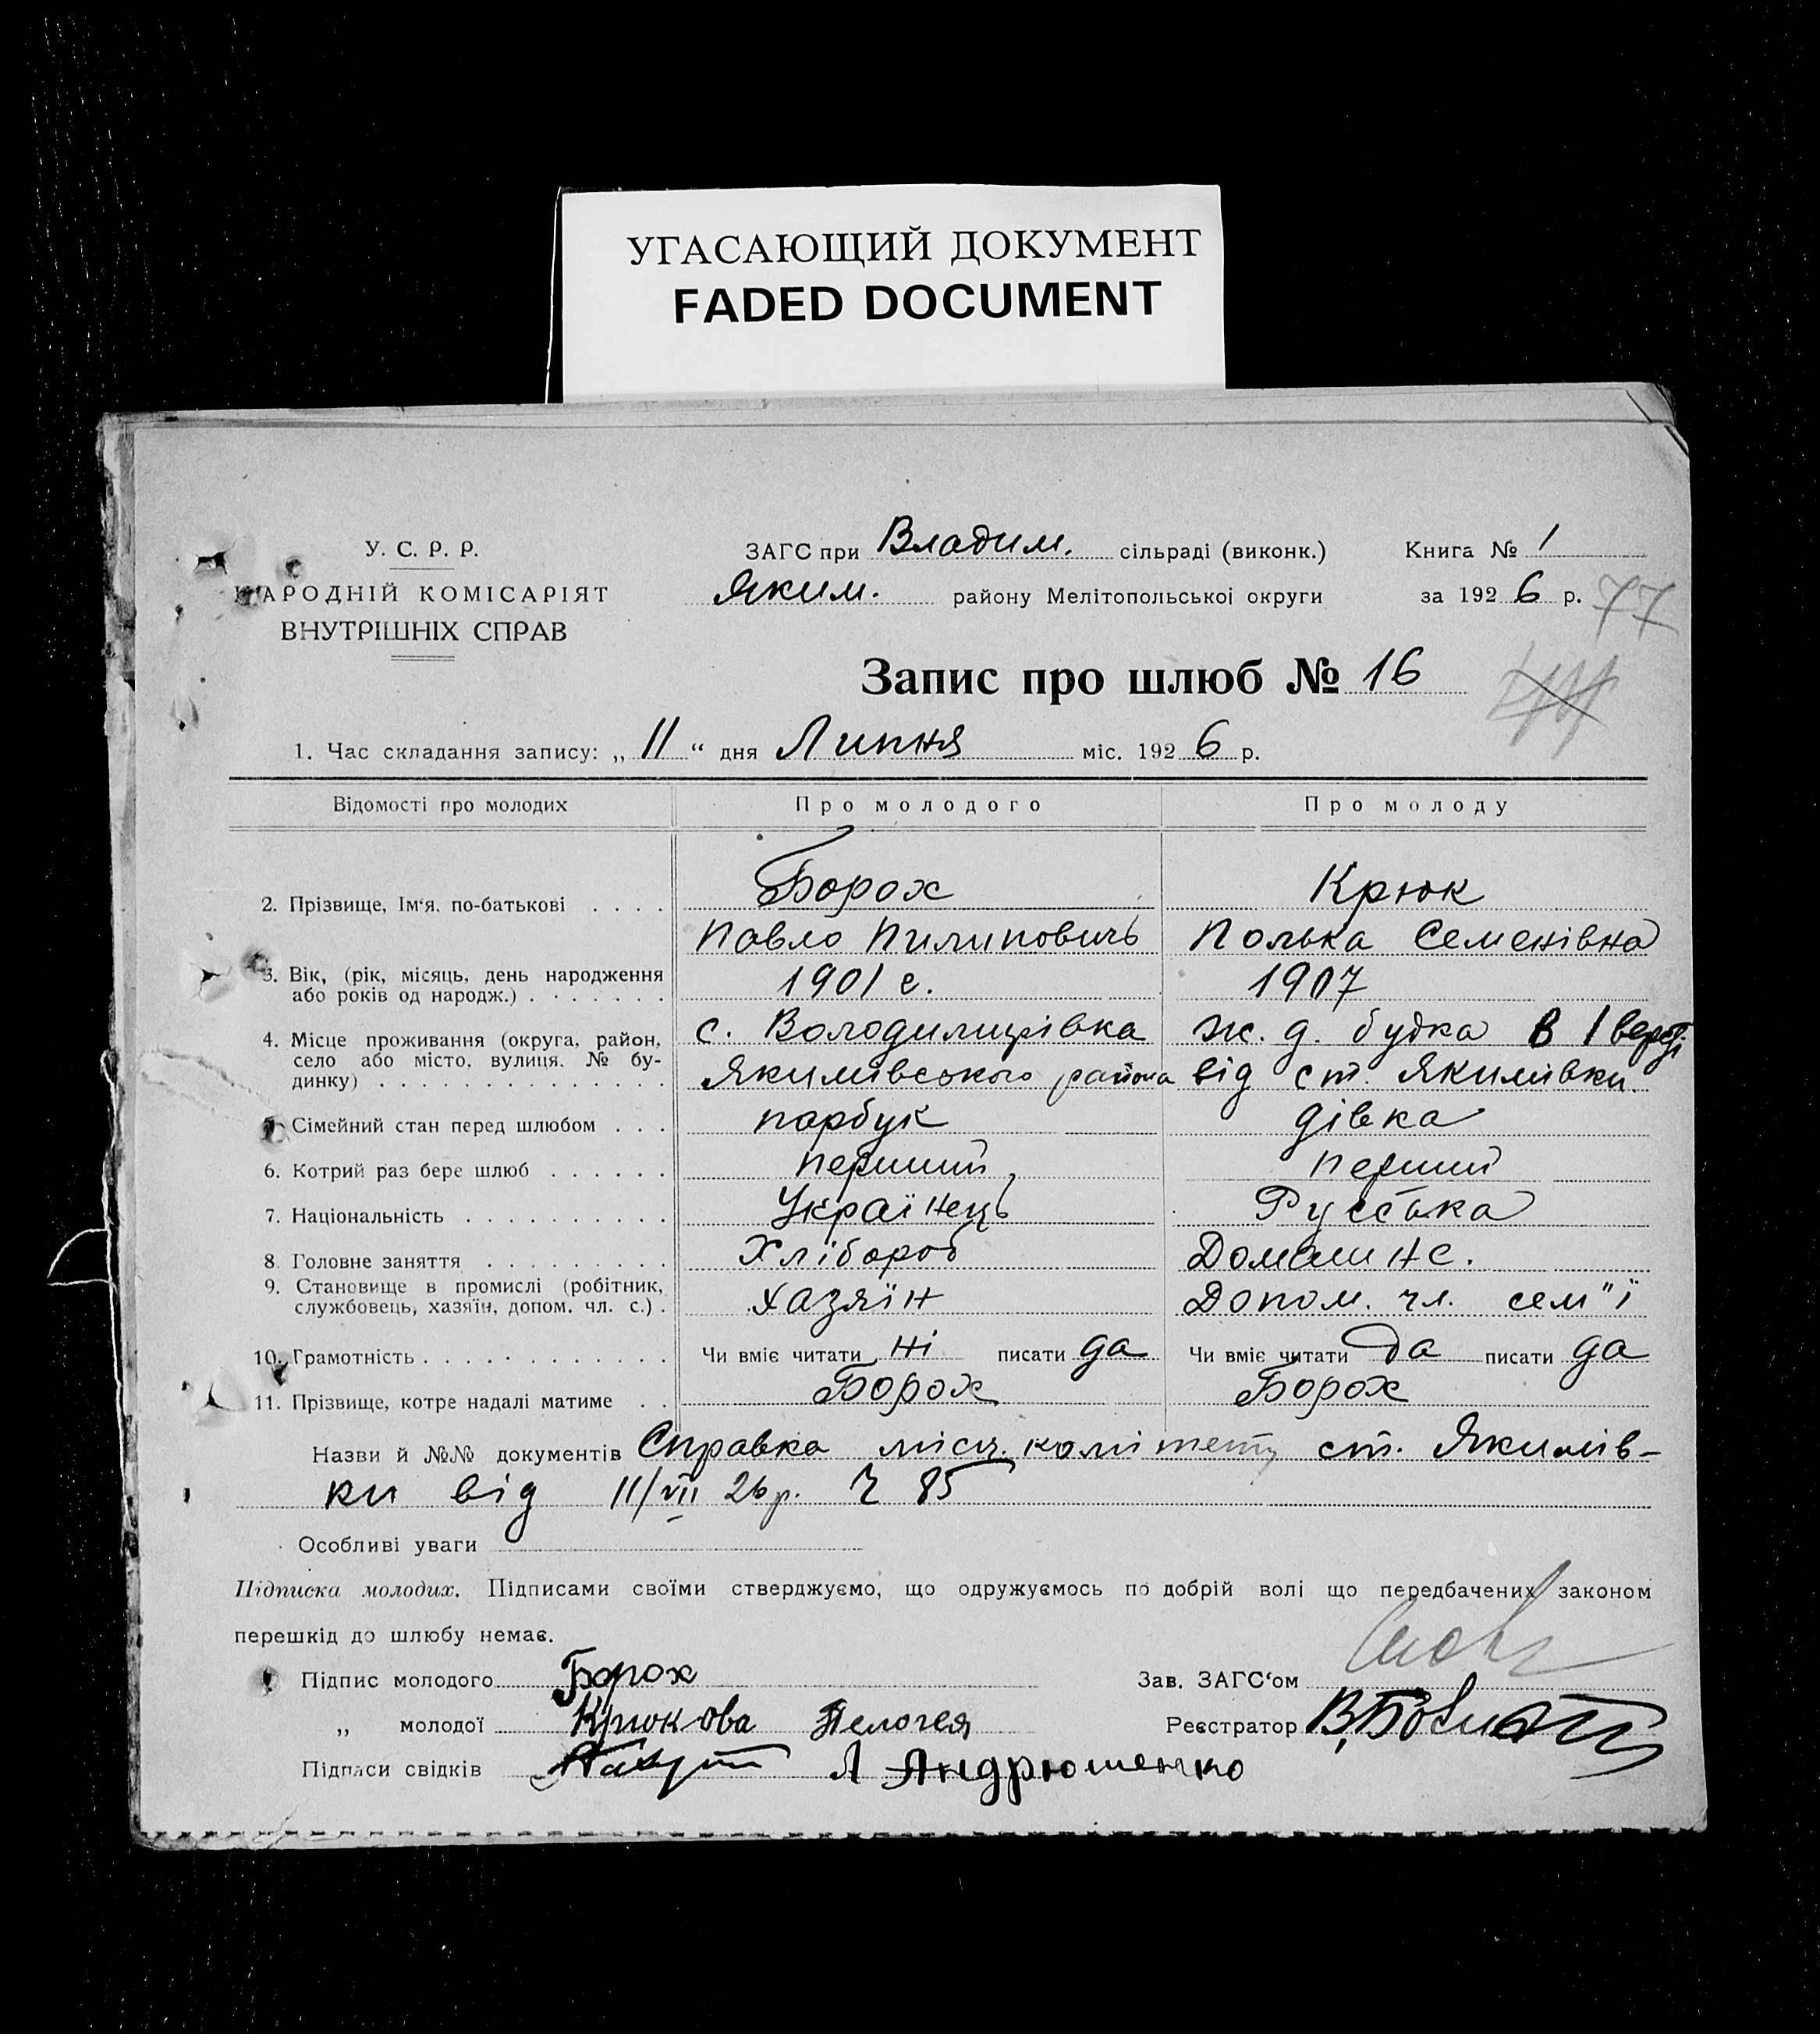 УГАСАЮЩИЙ ДОКУМЕНТ
FADED DOCUMENT
У. С. Р. Р.
НАРОДНІЙ КОМІСАРІЯТ
ВНУТРІШНІХ СПРАВ
ЗАГС при Владим. сільраді (виконк.)
Яким. району Мелітопольської округи
Книга № 1
за 1926 р.
77
Запис про шлюб № 16
1. Час складання запису: „ 11 “ дня Липня міс. 1926 р.
Відомості про молодих Про молодого Про молоду
Борох Крюк
2. Прізвище, Ім'я, по-батькові . . . .
Павло Пилиповичь Полька Семенівна
3. Вік, (рік, місяць, день народження або років од народж.) 1901 г. 1907
4. Місце проживання (округа, район, с. Володимирівка ж. д. будка в 1 версті
село або місто, вулиця, № будинку) Якимівського района від ст. Якимівки.
5. Сімейний стан перед шлюбом . . . парубук дівка
6. Котрий раз бере шлюб . . . . . . перший перший
7. Національність . . . . . . . . . . Українець Руська
8. Головне заняття . . . . . . . . . Хлібороб Домашнє.
9. Становище в промислі (робітник,
службовець, хазяїн, допом. чл. с.) . хазяїн Допом. чл. сем"ї
10. Грамотність . . . . . . . . . . . . Чи вміє читати ні писати да Чи вміє читати да писати да
11. Прізвище, котре надалі матиме . . Борох Борох
Назви й №№ документів Справка місц. комітету ст. Якимів-
ки від 11/VII 26 р. Ч 85
Особливі уваги
Підписка молодих. Підписами своїми стверджуємо, що одружуємось по добрій волі що передбачених законом
перешкід до шлюбу немає.
Підпис молодого Борох Зав. ЗАГС'ом
„ молодої Крюкова Пелогея Реєстратор
Підписи свідків Л Андрюшенко